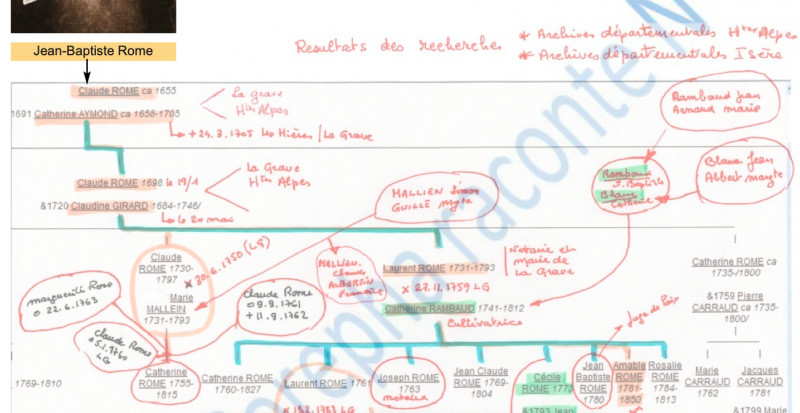 Jean-Baptiste Rome
Resultats des recherches
* Archives départementales Htes Alpes
* Archives départementales Isère
Claude ROME ca 1655
La grave
Htes Alpes
1691 Catherine AYMOND ca 1656-1705
+ 24.3.1705 Les Hières / La Grave
Rambaud Jean
Armand marie
Claude ROME 1696 le 19/1
La Grave
Htes Alpes
&1720 Claudine GIRARD 1684-1746/
le 20 mai
MALLIEN Simon
GUILLE Myte
Rambaud
J. Baptiste
Blanc
Blanc Jean
Albert mayte
Joseph raconte N
Claude
ROME 1730-
1797
x 30.6.1750 (LG)
Marie
MALLEIN
1731-1793
MALLIEN
Claude
ALBERTIN
Laurent ROME 1731-1793
x 27.11.1759 LG
Catherine RAMBAUD 1741-1812
Cultivatrice
Notaire et
maire de
La Grave
Catherine ROME ca
1735-/1800
&1759 Pierre
CARRAUD ca 1735-
1800/
marguerite Rome
o 22.6.1763
Claude Rome
o 9.8.1761
+ 11.8.1762
Claude Rome
o 5.1.1760
LG
Juge de Paix
1769-1810
Catherine
ROME 1755-
1815
Catherine ROME
1760-1827
Laurent ROME 1761
Joseph ROME
1763
notaire
Jean Claude
ROME 1769-
1804
Cécile
ROME 1775
Jean
Baptiste
ROME
1780
Amable
ROME
1781-
1850
Rosalie
ROME
1784-
1813
Marie
CARRAUD
1762
Jacques
CARRAUD
1781
LG
&1793 Jean
&1799 Marie